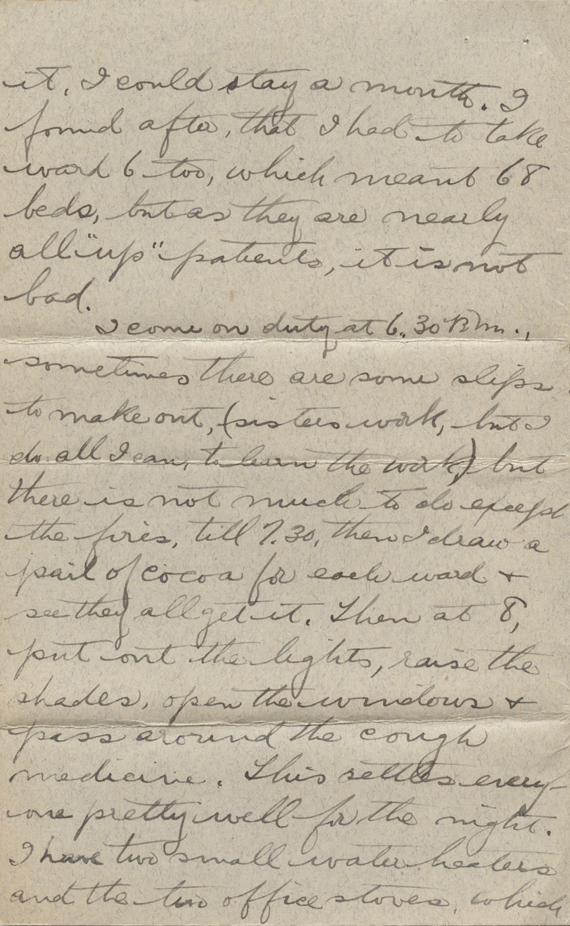 it, I could stay a month. I
found after, that I had to take
ward 6 too, which meant 68
beds, but as they are nearly
all "up" patients, it is not
bad.
I come on duty at 6.30 P.m.,
sometimes there are some slips
to make out, (sisters work, but I
do all I can, to learn the work) but
there is not much to do except
the fires, till 7.30, then I draw a
pail of cocoa for each ward +
see they all get it. Then at 8,
put out the lights, raise the
shades, open the windows +
pass around the cough
medicine. This settles every-
one pretty well for the night.
I have two small water heaters
and the two office stoves, which